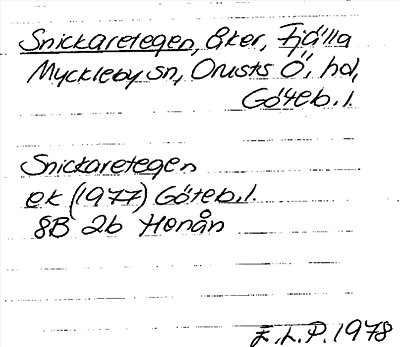 Snickaretegen, åker, Fjälla
Myckleby sn, Orusts Ö, hd,
Göteb. l.
Snickaretegen
ek (1977) Göteb. l.
8B 2b Henån
E.L.P. 1978